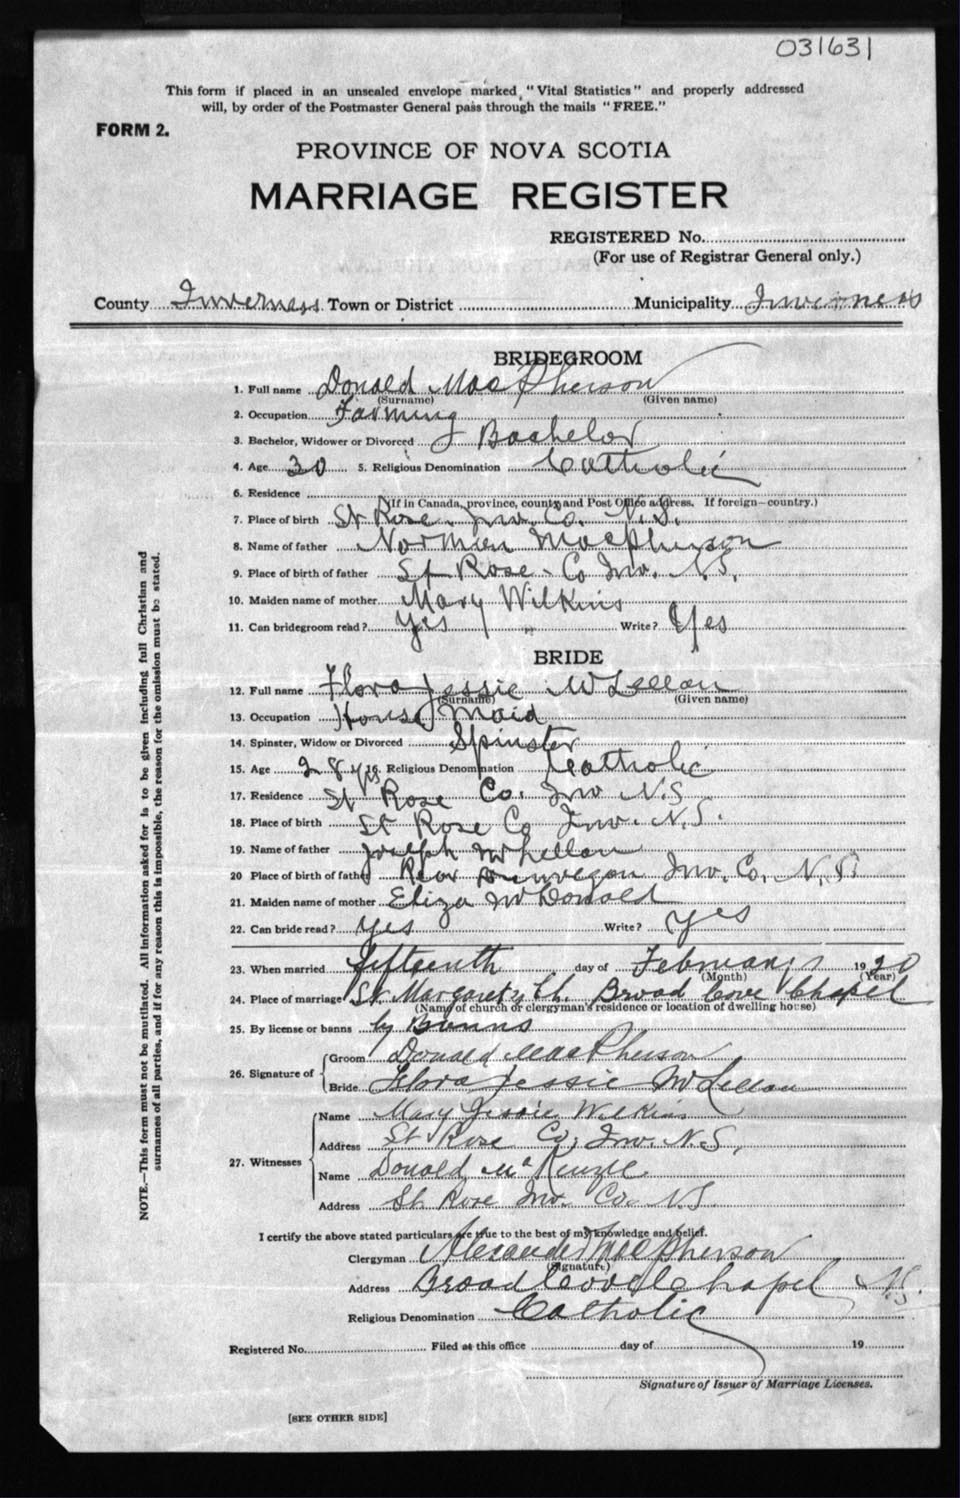 031631
This form if placed in an unsealed envelope marked "Vital Statistics" and properly addressed
will, by order of the Postmaster General pass through the mails "FREE."
FORM 2.
PROVINCE OF NOVA SCOTIA
MARRIAGE REGISTER
REGISTERED No.
(For use of Registrar General only.)
County Inverness Town or District Municipality Inverness
BRIDEGROOM
1. Full name Donald MacPherson
(Surname) (Given name)
2. Occupation Farming
3. Bachelor, Widower or Divorced Bachelor
4. Age 30 5. Religious Denomination Catholic
6. Residence
(If in Canada, province, county and Post Office address. If foreign—country.)
7. Place of birth St Rose Inv Co. N.S.
8. Name of father Norman MacPherson
9. Place of birth of father St Rose Co Inv. N.S.
10. Maiden name of mother Mary Wilkins
11. Can bridegroom read? Yes Write? Yes
BRIDE
12. Full name Flora Jessie McLellan
(Surname) (Given name)
13. Occupation House Maid
14. Spinster, Widow or Divorced Spinster
15. Age 28 yrs 16. Religious Denomination Catholic
17. Residence St Rose Co. Inv N.S
18. Place of birth St Rose Co Inv. N.S.
19. Name of father Joseph McLellan
20 Place of birth of father Rear Dunvegan Inv. Co. N.S.
21. Maiden name of mother Eliza McDonald
22. Can bride read? Yes Write? Yes
23. When married fifteenth day of February 1920
(Month) (Year)
24. Place of marriage St. Margaret's Ch. Broad Cove Chapel
(Name of church or clergyman's residence or location of dwelling house)
25. By license or banns by Banns
26. Signature of Groom Donald MacPherson
Bride Flora Jessie McLellan
27. Witnesses Name Mary Jessie Wilkins
Address St Rose Co, Inv. N.S,
Name Donald McKenzie
Address St. Rose Inv. Co. N.S.
I certify the above stated particulars are true to the best of my knowledge and belief.
Clergyman Alexander MacPherson
(Signature)
Address Broad Cove Chapel N.S.
Religious Denomination Catholic
Registered No. Filed at this office day of 19
Signature of Issuer of Marriage Licenses.
[SEE OTHER SIDE]
NOTE.—This form must not be mutilated. All information asked for is to be given including full Christian and
surnames of all parties, and if for any reason this is impossible, the reason for the omission must be stated.